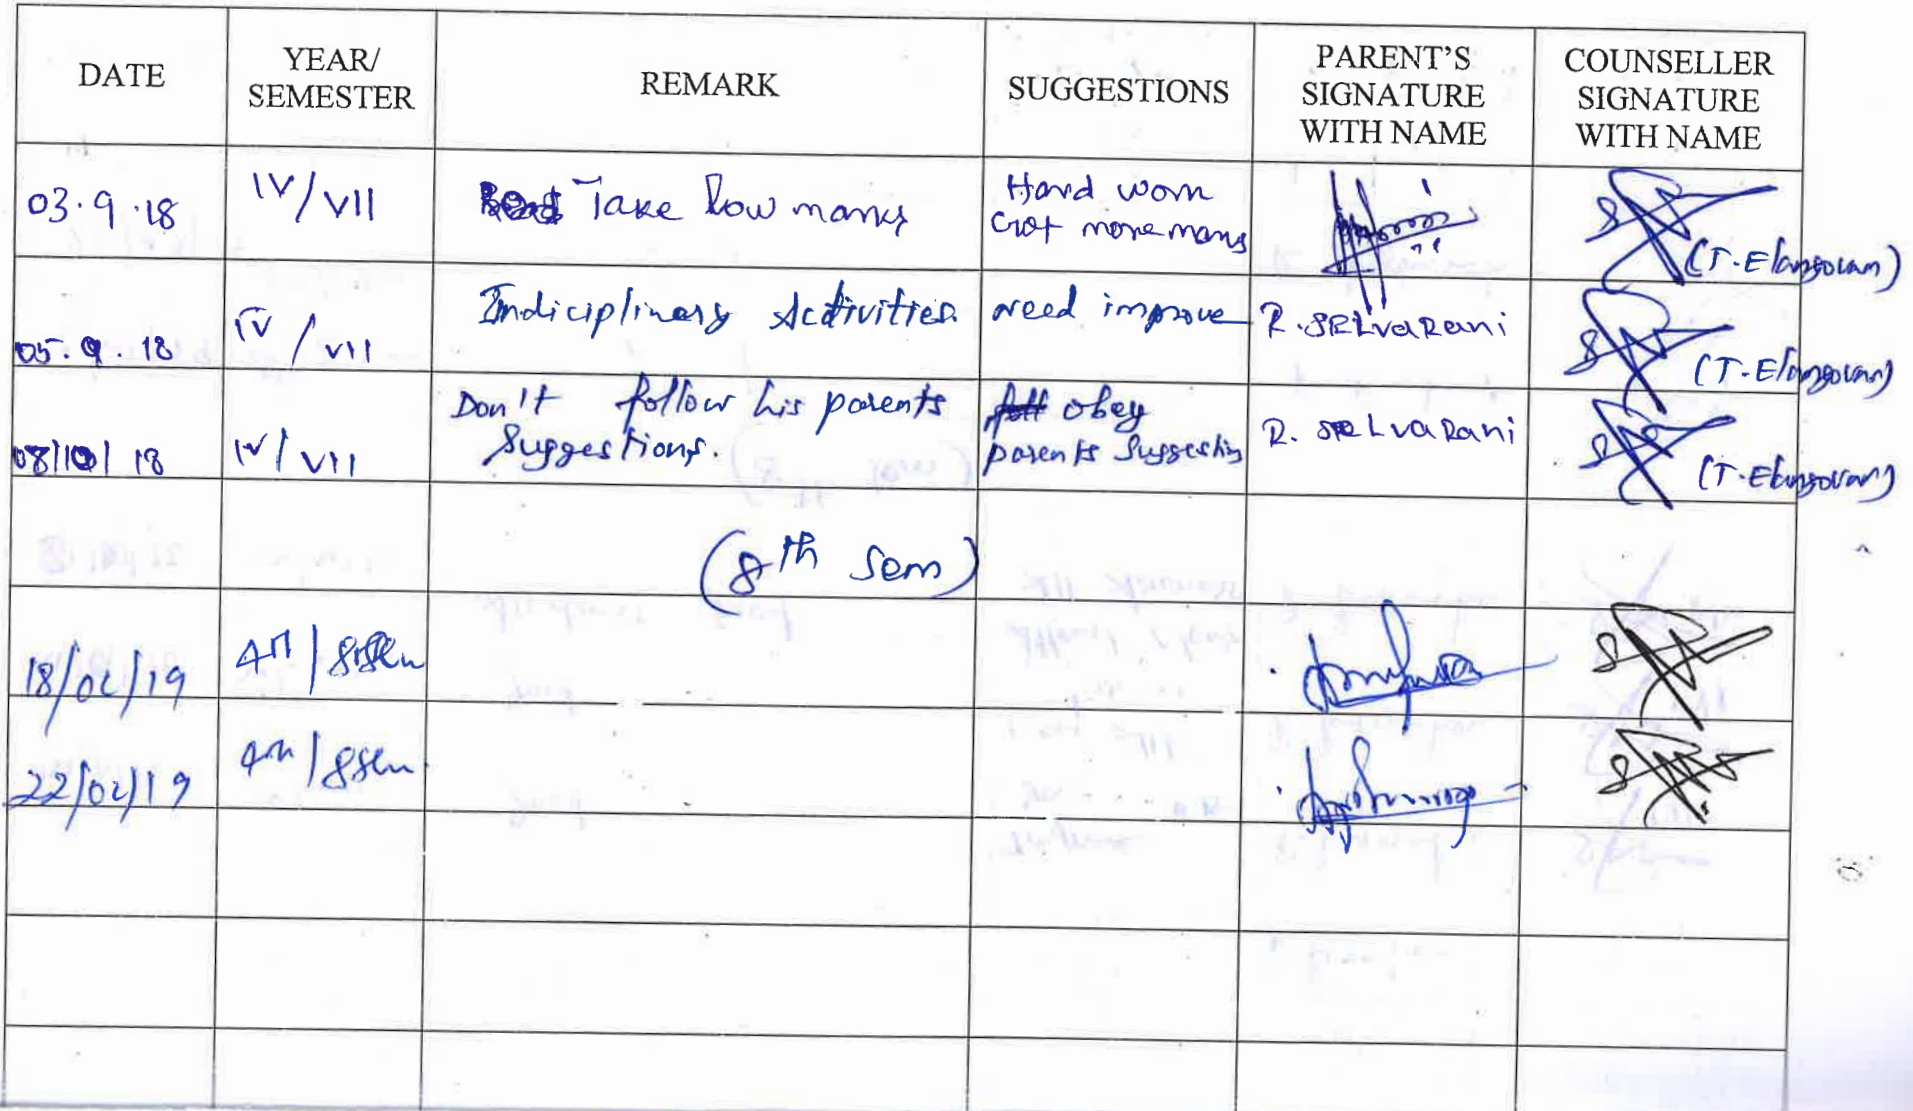 DATE
YEAR/
SEMESTER
REMARK
SUGGESTIONS
PARENT'S
SIGNATURE
WITH NAME
COUNSELLER
SIGNATURE
WITH NAME
03.9.18
IV/VII
Take low marks
Hard work
Got more marks
(T.Elangovan)
05.9.18
IV/VII
Indiciplinary Activities.
need improve
R.SELVARANI
(T.Elangovan)
08/10/18
IV/VII
Don't follow his parents
suggestions.
obey
parents suggestions
R. SELVARANI
(T.Elangovan)
(8th Sem)
18/02/19
4th/8sem
22/02/19
4th/8sem